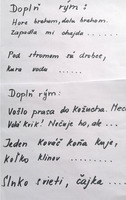 Doplň rým:
Hore brehom, dolu brehom.
Zapadla mi chajda ........
Pod stromom sú drobec,
Kura vodu ......
Doplň rým:
Vošlo prasa do kožucha.
Volá kvik! Nečuje ho, ale ...
Jeden kováč koňa kuje,
koľko klinov ........
Slnko svieti, čajka ....